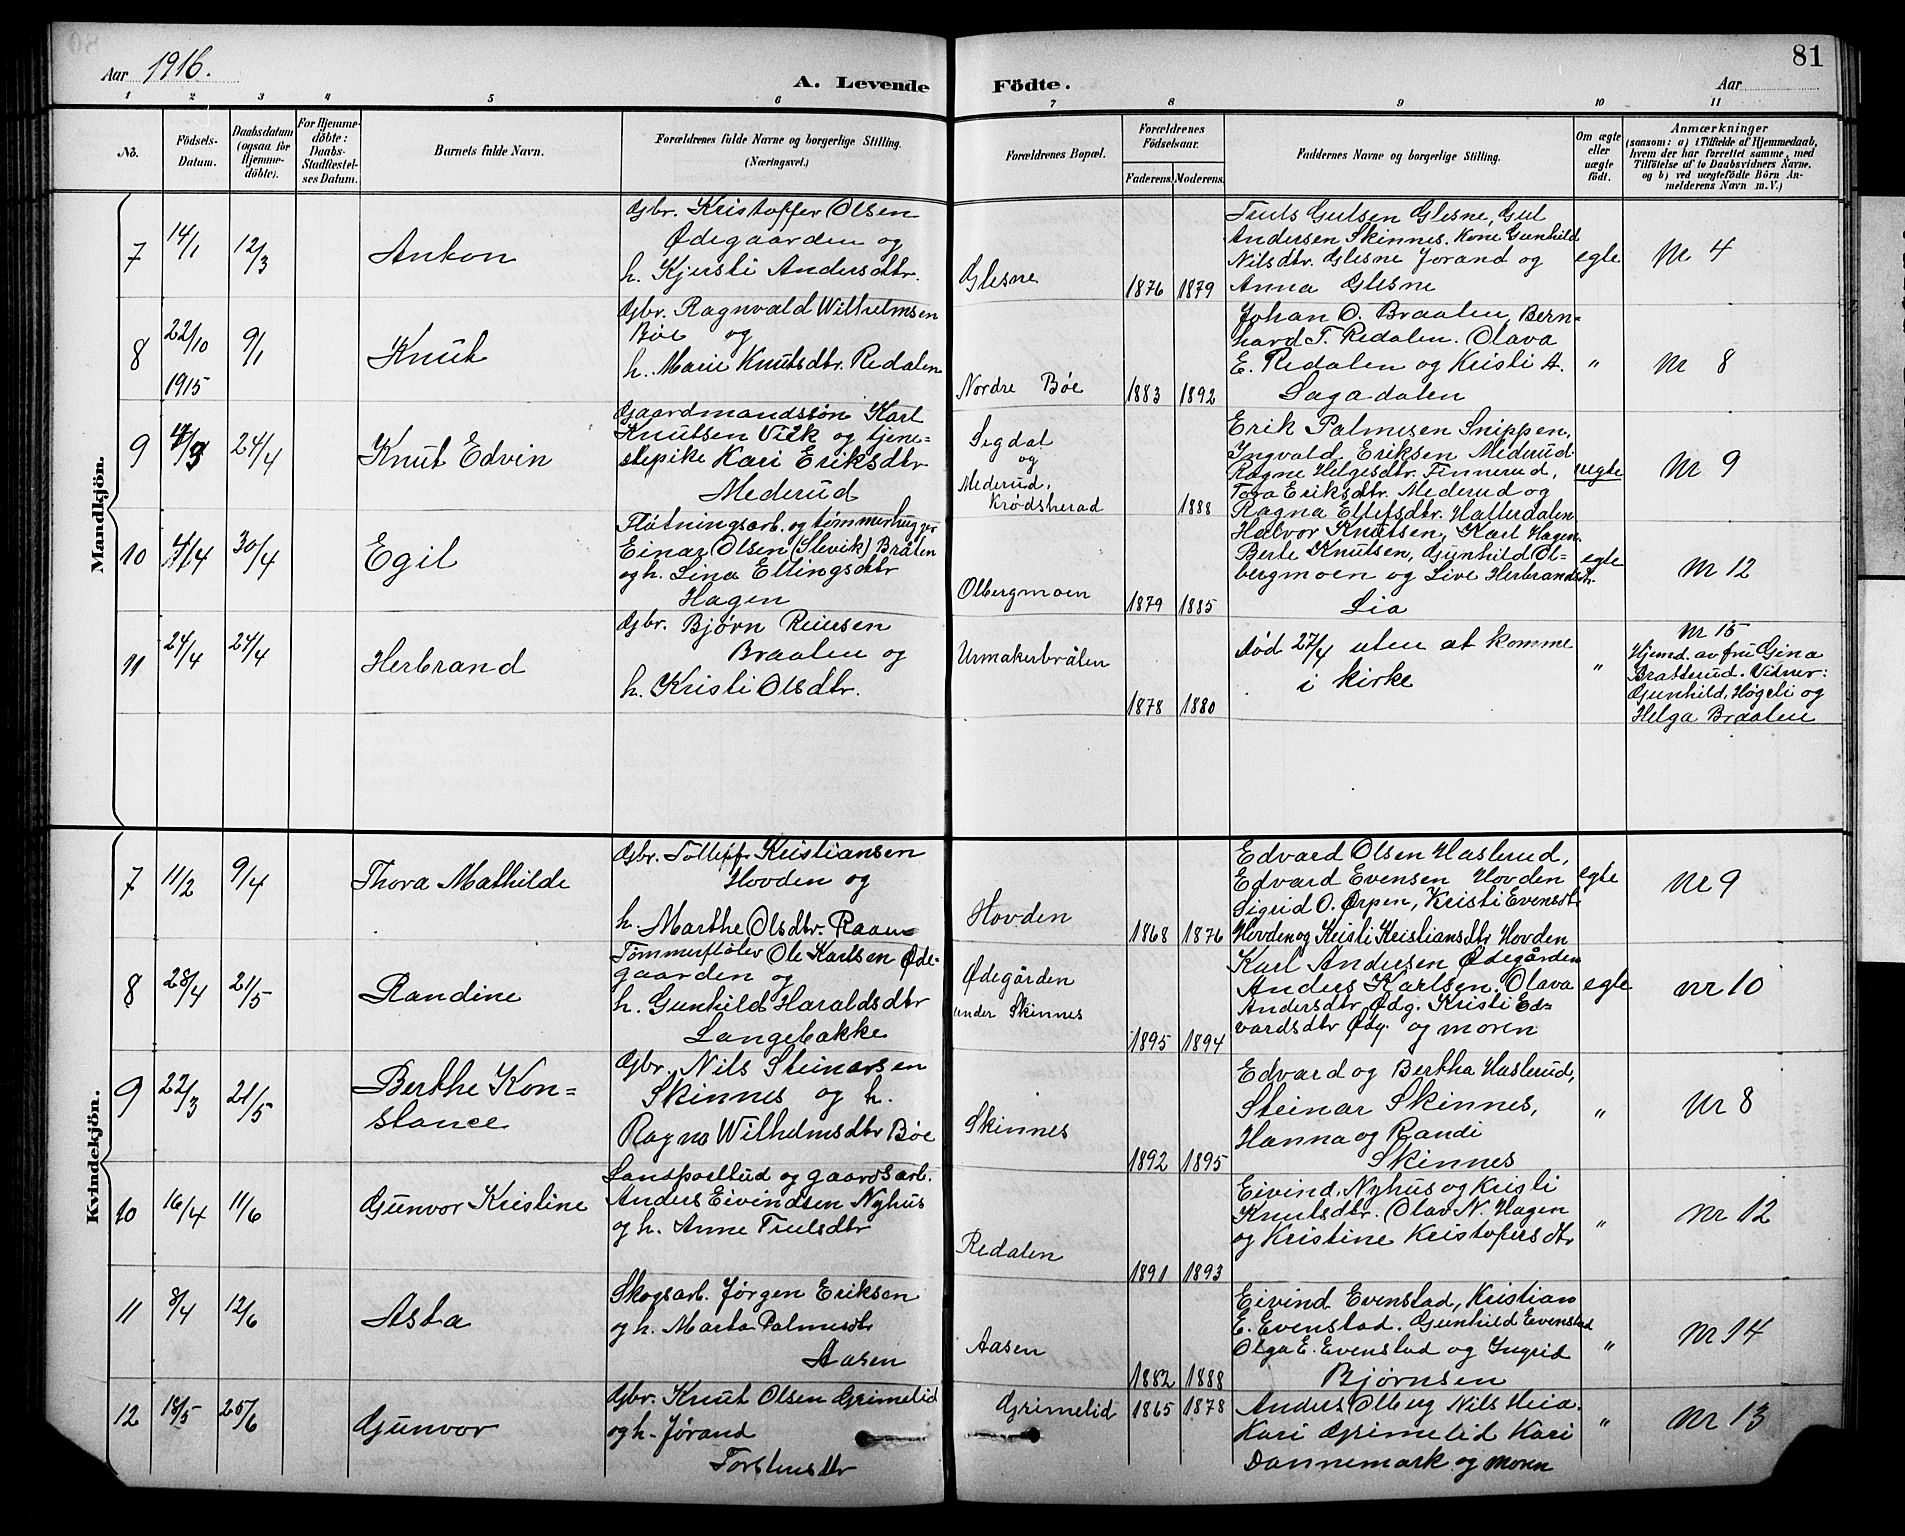 Aar 1916.
A. Levende Födte.
Aar
81
1 2 3 4 5 6 7 8 9 10 11
No.
Födsels-Datum.
Daabsdatum (ogsaa for Hjemme-döbte).
For Hjemme-döbte: Daabs-Stadfæstel-ses Datum.
Barnets fulde Navn.
Forældrenes fulde Navne og borgerlige Stilling. (Næringsvei.)
Forældrenes Bopæl.
Forældrenes Födselsaar.
Faderens. Moderens.
Faddernes Navne og borgerlige Stilling.
Om ægte eller uægte födt.
Anmærkninger
(saasom: a) i Tilfælde af Hjemmedaab,
hvem der har forrettet samme, med
Tilföielse af to Daabsvidners Navne,
og b) ved uægtefödte Börn An-
melderens Navn m. V.)
Mandkjön.
7 14/1 12/3 Anton
Gbr. Kristoffer Olsen
Ødegaarden og
h. Kjersti Andersdtr.
Glesne 1876 1879
Truls Gulsen Glesne, Gul
Andersen Skinnes. Kone Gunhild
Nilsdtr. Glesne Jorand og
Anna Glesne
egte Nr 4
8 22/10 1915 9/1 Knut
Gbr. Ragnvald Wilhelmsen
Bøe og
h. Marie Knutsdtr. Redalen
Nordre Bøe 1883 1892
Johan O. Braaten, Bern=
hard T. Redalen. Olava
E. Redalen og Kristi A.
Sagadalen
" Nr 8
9 24/4 Knut Edvin
Gaardmandssøn Karl
Knutsen Vük og tjene=
stepike Kari Eriksdtr
Mederud
Sigdal
og
Mederud,
Krødsherad
1888
Erik Palmesen Snippen,
Ingvald Eriksen Mederud
Ragne Helgesdtr. Finnerud,
Tora Eriksdtr. Mederud og
Ragna Ellefsdtr. Hatterdalen
uegte Nr 9
10 4/4 30/4 Egil
Fløtningsarb. og tømmerhugger
Einar Olsen (Slevik) Bråten
og h. Lina Ellingsdtr
Hagen
Olbergmoen 1879 1885
Halvor Knutsen, Karl Hagen.
Berte Knutsen, Gunhild Ol-
bergmoen og Live Herbrandsdtr.
Lia
egte Nr 12
11 24/4 24/4 Herbrand
Gbr. Bjørn Reiersen
Braaten og
h. Kristi Olsdtr.
Urmakerbråten 1878 1880
død 27/4 uten at komme
i kirke
"
Nr 15
Hjemd. av fru Gina
Bratterud. Vidner:
Gunhild Høgeli og
Helga Braaten
Kvindekjön.
7 11/2 9/4 Thora Mathilde
Gbr. Tollef Kristiansen
Hovden og
h. Marthe Olsdtr. Raaen
Hovden 1868 1876
Edvard Olsen Haslerud,
Edvard Evensen Hovden
Sigrid O. Ørpen, Kristi Evensdtr
Hovden og Kristi Kristiansdtr Hovden
egte Nr 9
8 28/4 21/5 Randine
Tømmerfløter Ole Karlsen Øde-
gaarden og
h. Gunhild Haraldsdtr
Langebakke
Ødegården
under Skinnes
1895 1894
Karl Andersen Ødegården
Anders Karlsen. Olava
Andersdtr Ødg. Kristi Ed-
vardsdtr Ødg. og moren
egte nr 10
9 22/3 21/5 Berthe Kon=
stance
Gbr. Nils Steinarsen
Skinnes og h.
Ragna Wilhelmsdtr Bøe
Skinnes 1892 1895
Edvard og Bertha Haslerud,
Steinar Skinnes,
Hanna og Randi
Skinnes
" Nr 8
10 16/4 11/6 Gunvor Kristine
Landpostbud og gaardsarb.
Anders Eivindsen Nyhus
og h. Anne Trulsdtr
Redalen 1891 1893
Eivind Nyhus og Kristi
Knutsdtr. Olav N. Hagen
og Kristine Kristofersdtr
" Nr 12
11 8/4 12/6 Asta
Skogsarb. Jørgen Eriksen
og h. Marta Palmesdtr
Aasen
Aasen 1882 1888
Eivind Evenstad, Kristian
E. Evenstad. Gunhild Evenstad
Olga E. Evenstad og Ingrid
Bjørnsen
" Nr 14
12 18/5 25/6 Gunvor
Gbr. Knut Olsen Grimelid
og h. Jørand
Torstensdtr
Grimelid 1865 1878
Anders Olberg Nils Heia.
Kari Grimelid Kari
Dannemark og moren
" Nr 13